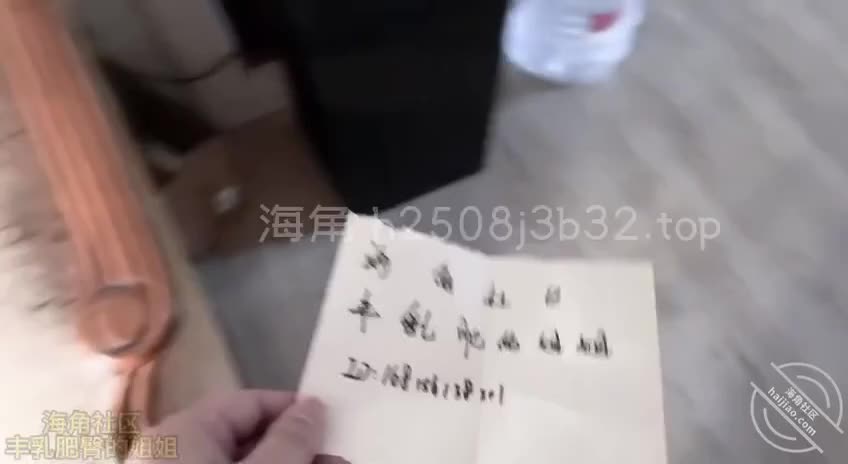 海角 h2508j3b32.top
海角社区
丰乳肥臀的姐姐
海角社区
丰乳肥臀的姐姐
海角社区
haijiao.com